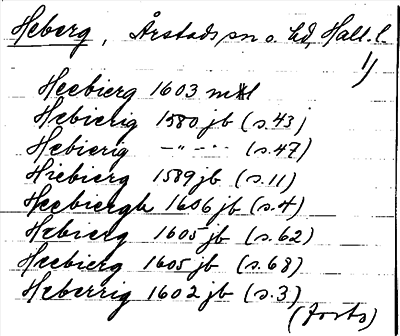 Heberg, Årstads sn o. hd, Hall. l.
1)
Heebierg 1603 mtl
Hebierig 1580 jb (s. 43)
Hebierig -"- -- (s. 47)
Hieberg 1589 jb (s. 11)
Heebiergh 1606 jb (s. 4)
Hebierg 1605 jb (s. 62)
Heebierg 1605 jb (s. 68)
Heberrig 1602 jb (s. 3)
(Forts)